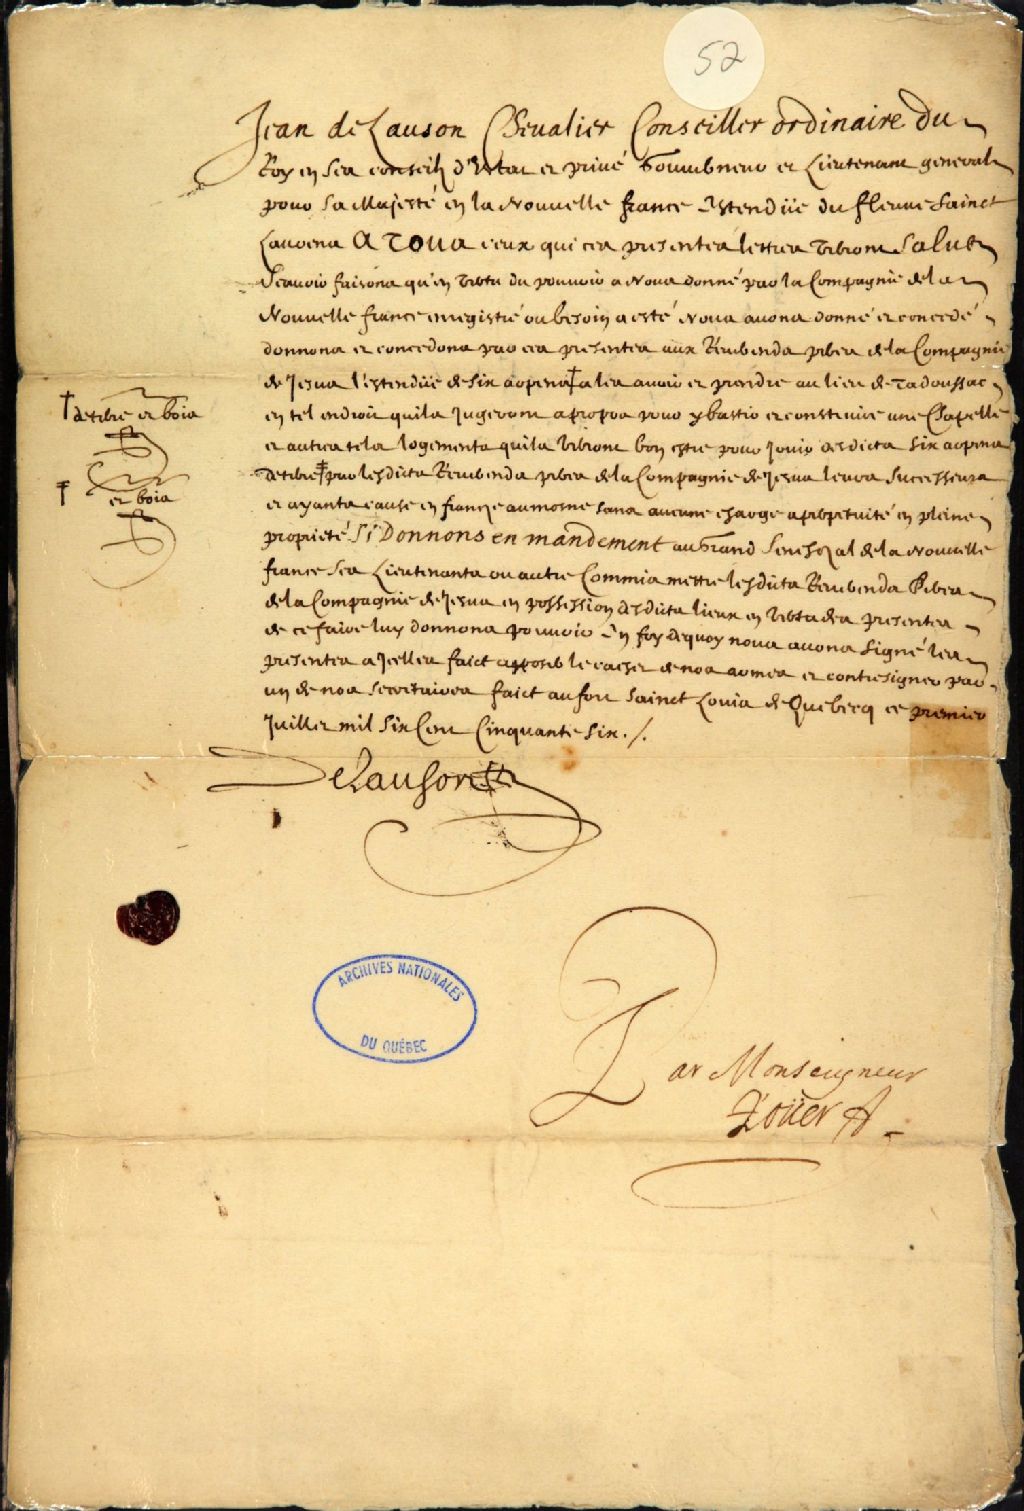 52
Jean de Lauson Chevalier Conseiller ordinaire du
Roy en ses conseils d'Estat et privé Gouverneur et Lieutenant general
pour Sa Majesté en la Nouvelle france Estendüe du fleuve Sainct
Laurens A Tous ceux qui ces presentes lettres verront Salut
Scavoir faisons qu'en vertu du pouvoir a Nous donné par la Compagnie de la
Nouvelle france enregistré ou besoin a esté Nous avons donné et concedé
donnons et concedons par ces presentes aux Reverends peres de la Compagnie
de Jesus l'estendüe de six arpens † a les avoir et prendre au lieu de Tadoussac
en tel endroit quils Jugeront a propos pour y bastir et construire une Chapelle
et autres tels logements quils verront bon estre pour Jouir desdicts six arpens
de terre ‡ par lesdicts Reverends peres de la Compagnie de Jesus leurs Successeurs
et ayants cause en franche aumosne sans aucune charge a perpetuité en pleine
propriété Si Donnons en mandement au Grand Seneschal de la Nouvelle
france Ses Lieutenants ou autre Commis mettre lesdicts Reverends Peres
de la Compagnie de Jesus en possession desdicts lieux en vertu des presentes
de ce faire luy donnons pouvoir En foy dequoy nous avons signé les
presentes a Jcelles faict apposer le cachet de nos armes et contresigner par
un de nos secretaires faict au fort Sainct Louis de Quebecq ce premier
Juillet mil Six Cent Cinquante Six ./.
† de terre et bois
‡ et bois
DeLauson
ARCHIVES NATIONALES
DU QUÉBEC
Par Monseigneur
Roüer